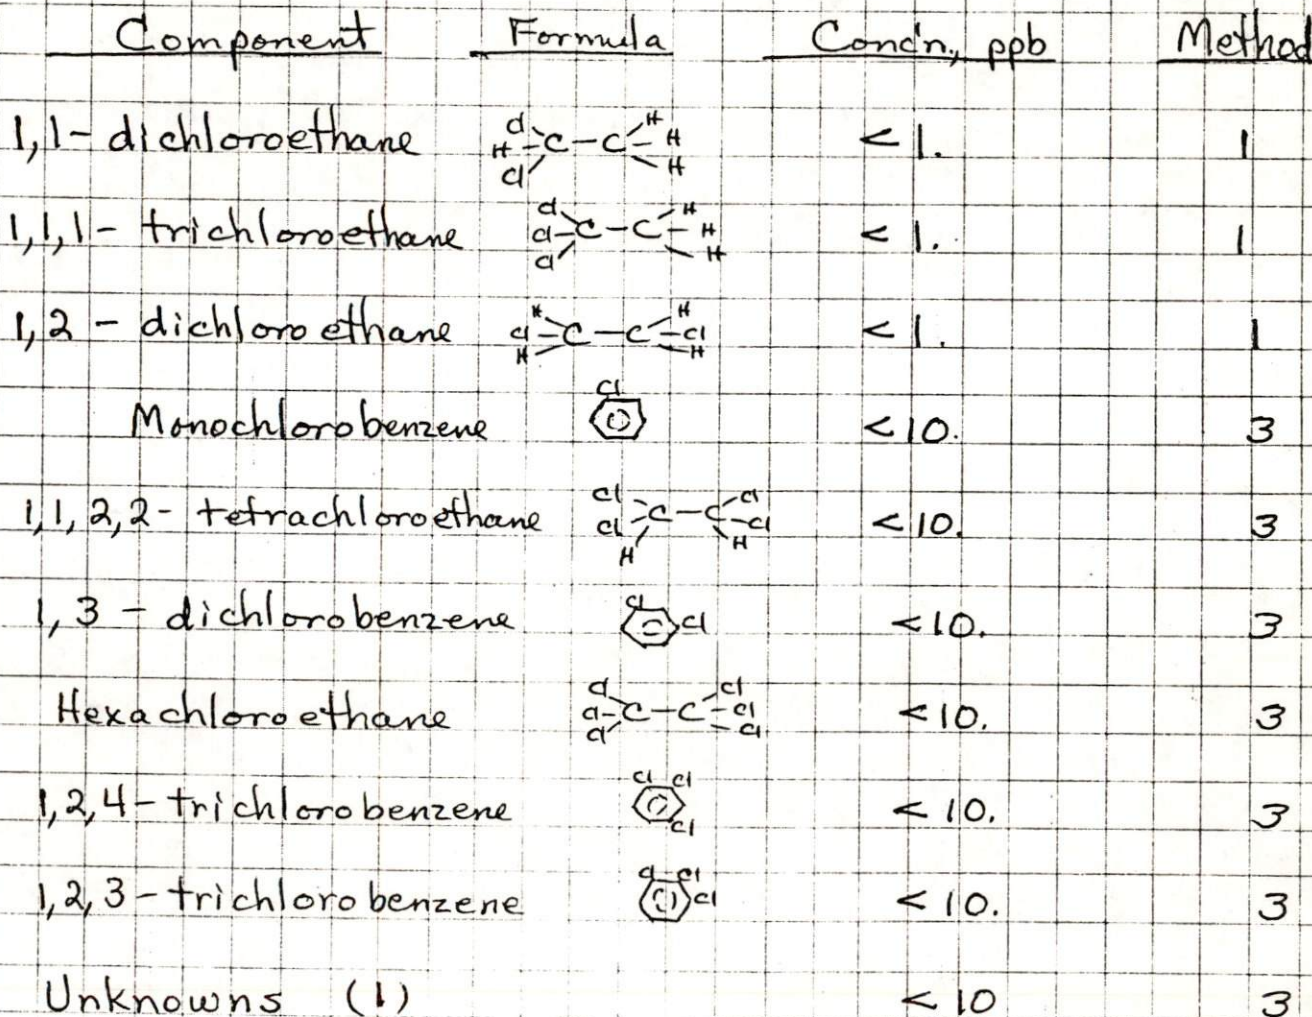 Component Formula Concn, ppb Method
1,1- dichloroethane Cl H Cl C-C H H H < 1. 1
1,1,1- trichloroethane Cl Cl Cl C-C H H H < 1. 1
1,2 - dichloroethane H Cl H C-C H Cl H < 1. 1
Monochlorobenzene Cl <10. 3
1,1,2,2- tetrachloroethane Cl Cl H C-C Cl Cl H <10. 3
1,3 - dichlorobenzene Cl Cl <10. 3
Hexachloroethane Cl Cl Cl C-C Cl Cl Cl <10. 3
1,2,4-trichlorobenzene Cl Cl Cl < 10. 3
1,2,3-trichlorobenzene Cl Cl Cl < 10. 3
Unknowns (1) <10 3